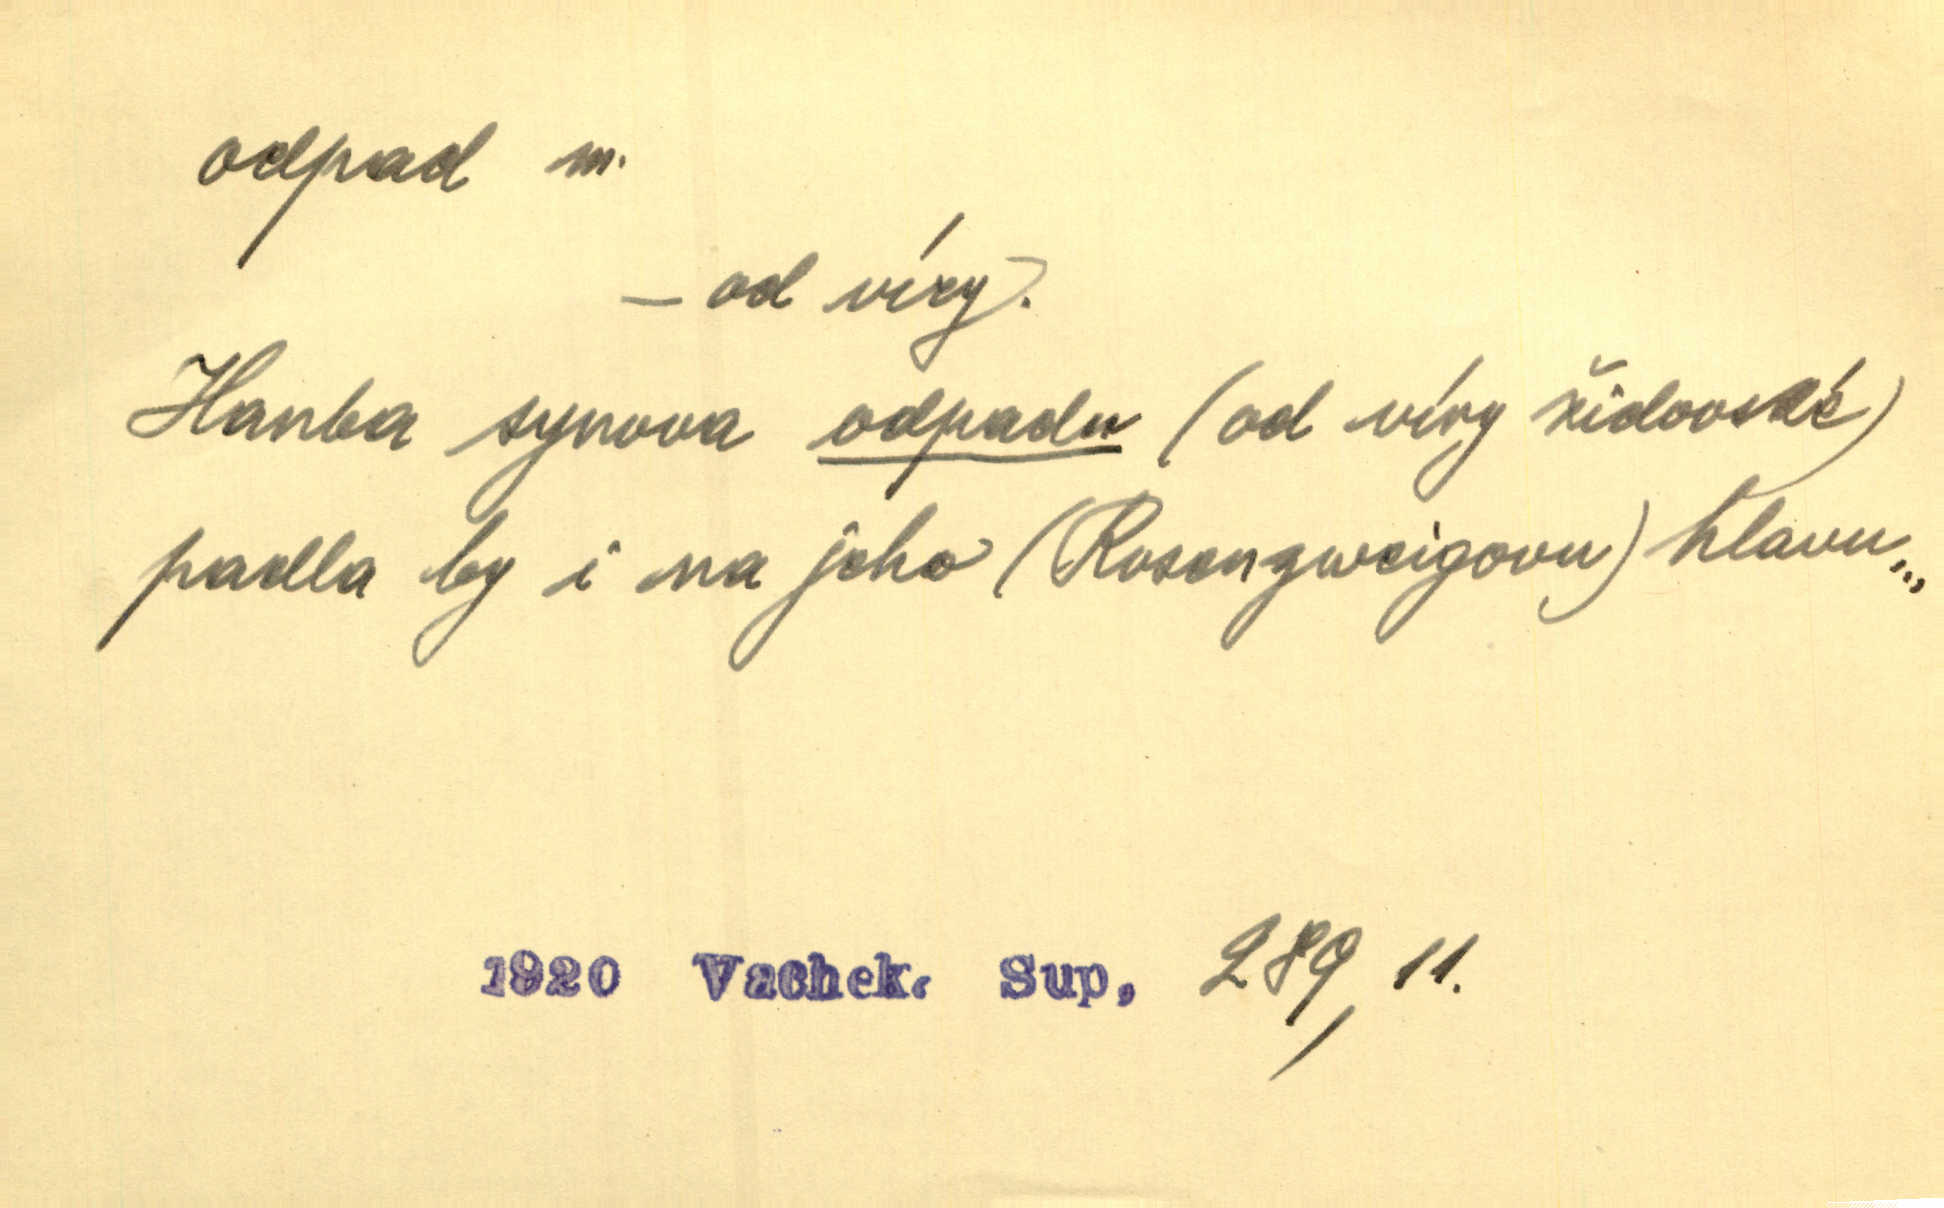 odpad m.
– od víry.
Hanba synova odpadu (od víry židovské)
padla by i na jeho (Rosenzweigovu) hlavu...
1920 Vachek. Sup, 289, 11.